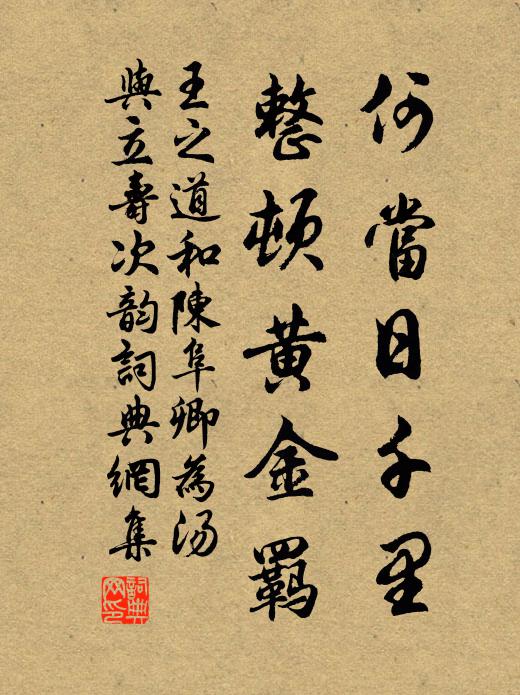 何當日千里
整頓黃金羈
王之道和陳阜卿為湯
與立壽次韵詞典網集
詞典
网印